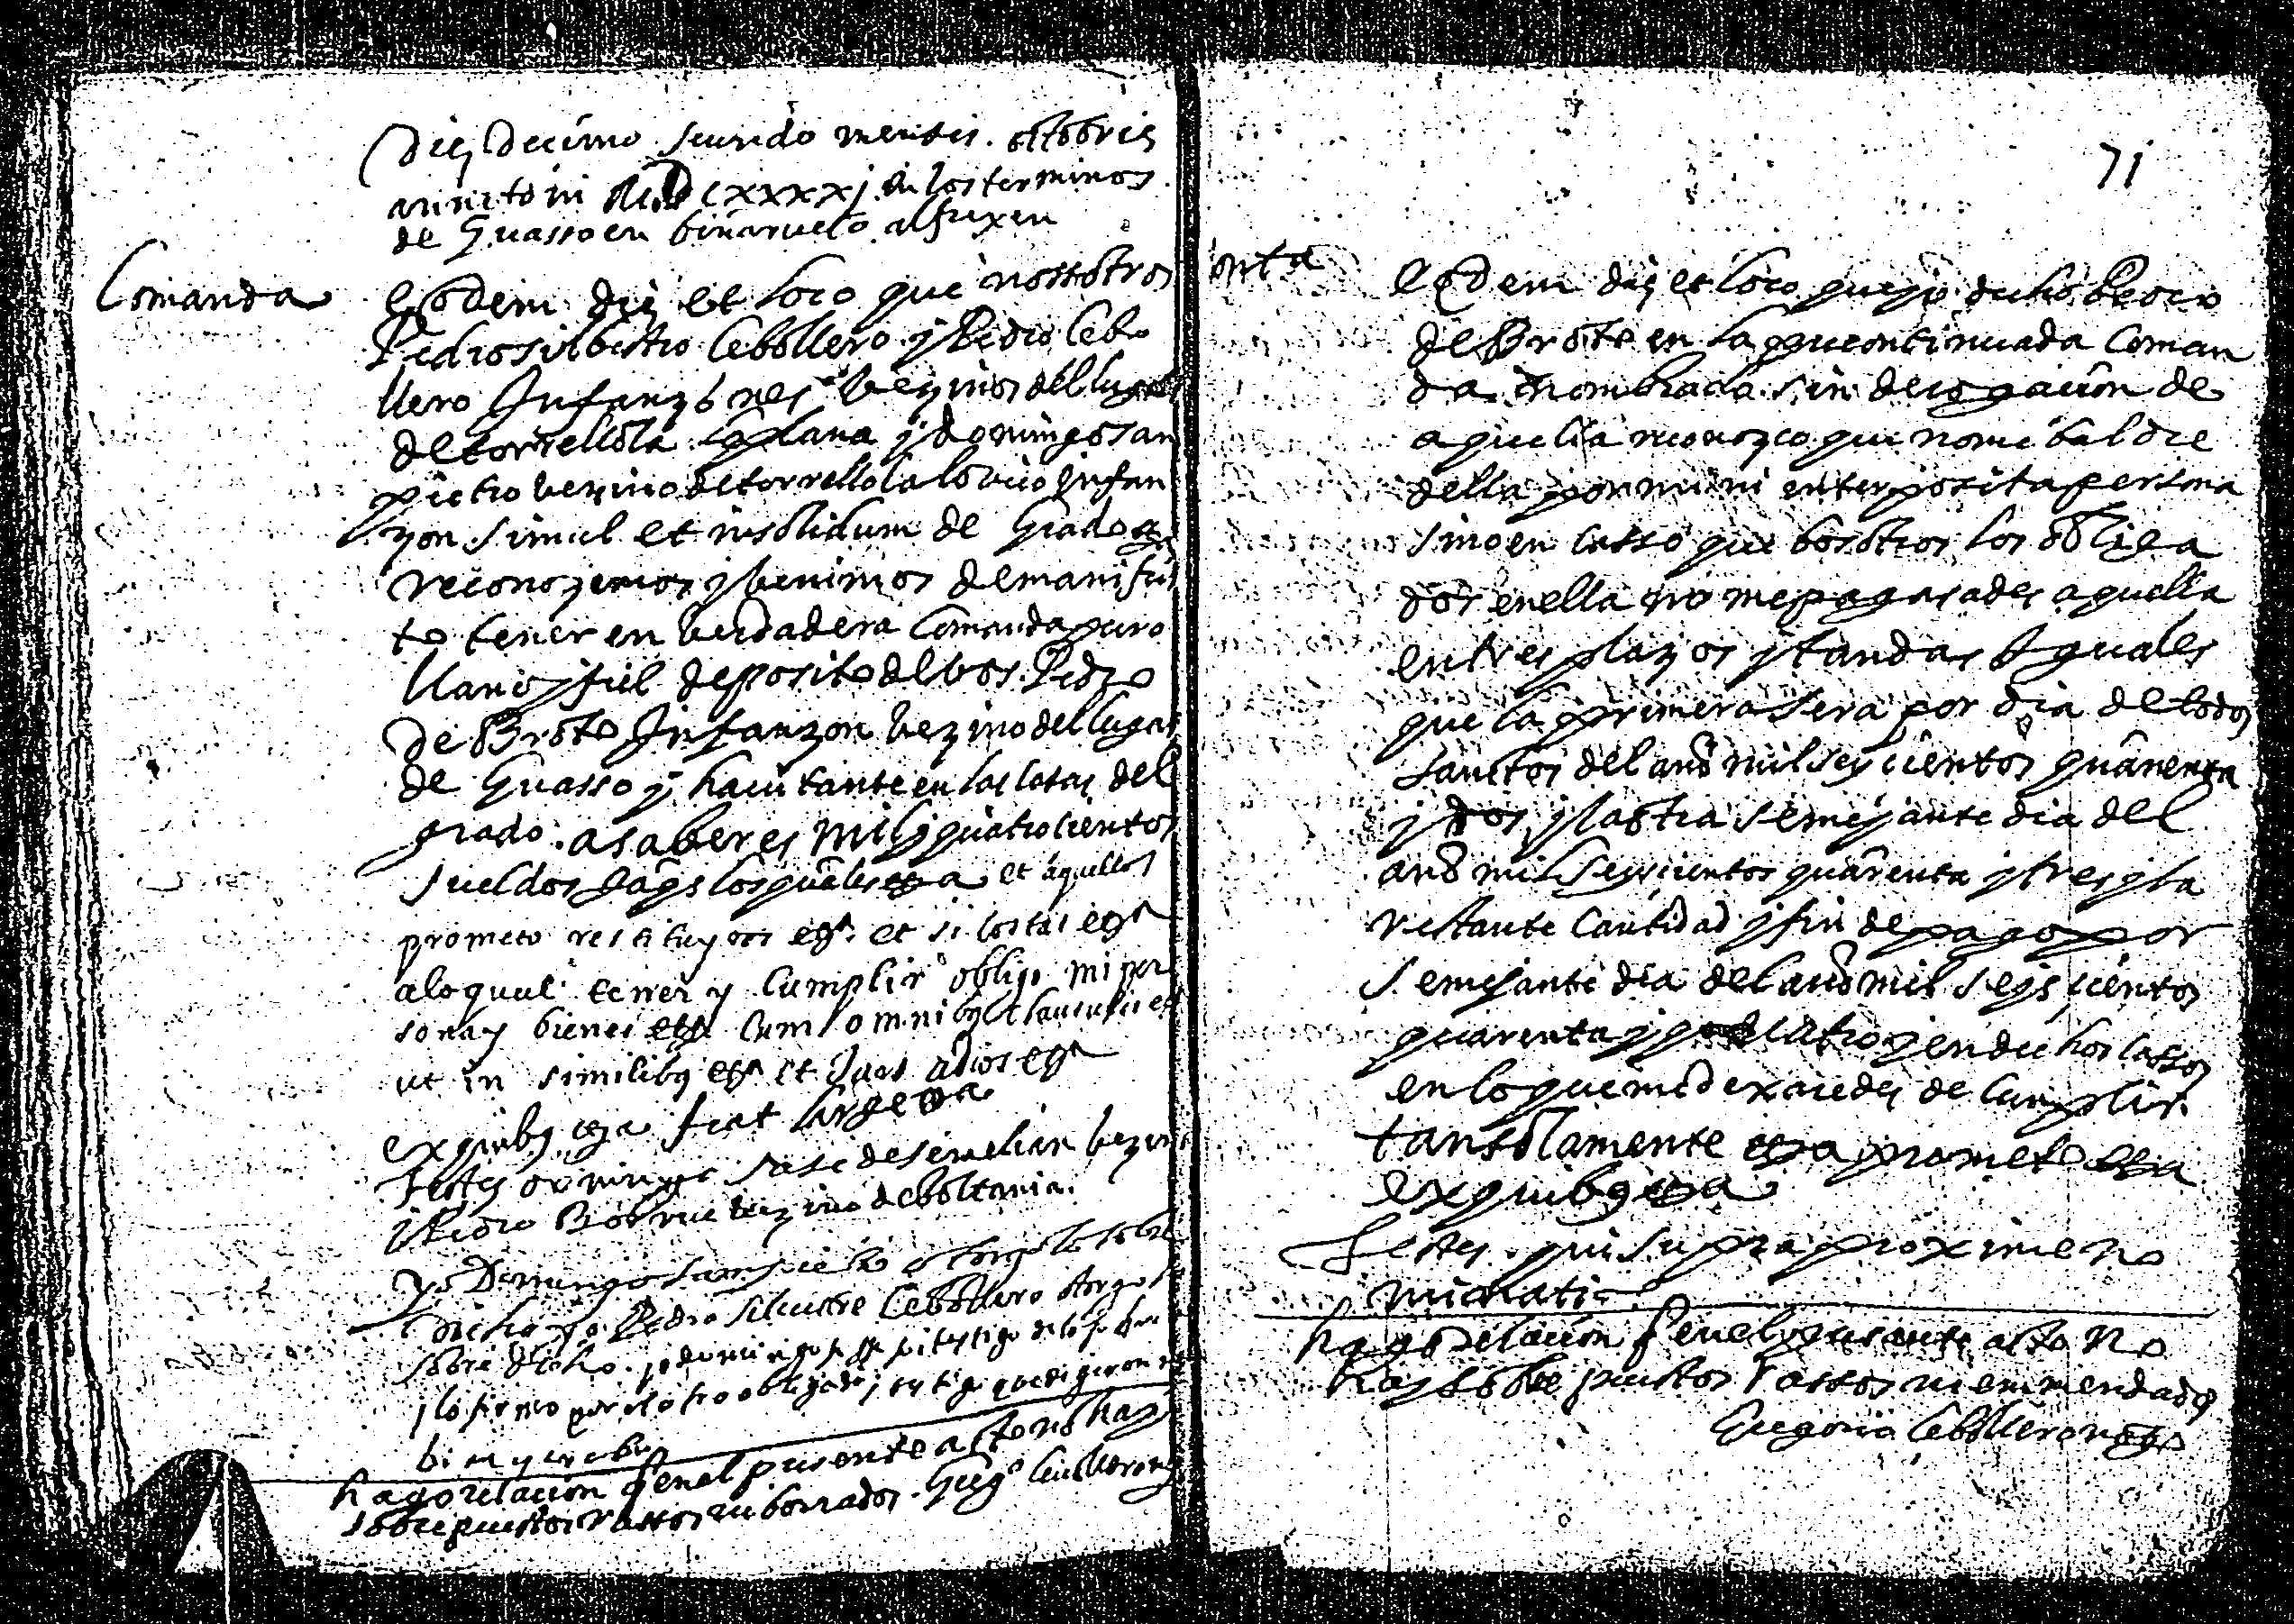 Die Decimo secundo mensis. octobris
anni et to in MDCXXXXj en los terminos
de Guasso en
Comanda
Eodem die et loco que nosotros
Pedro silbestro Cebollero y Pedro Cebo
llero Infanzones vezinos del lugar
de torrellola la plana y domingo san
pietro vezino de torrellola lobico infan
zon simul et insolidum de Grado etca
reconozemos y benimos de manifies
to tener en berdadera Comanda puro
llano y fiel deposito de bos Pedro
De Broto Infanzon vezino del lugar
de Guasso y havitante en las cotas del
grado. a saber es mil y quatrocientos
sueldos Jaqs los quales etca et aquellos
prometo restituyros etca et si costas etca
a lo qual tener y Cumplir obligo mi per
sona y bienes etca Cum omnibus clausulis et
ut in similibus etca et Juro a dios etca
ex quibus etca fiat large etca
Testes domingo sase de semelian vezino
y Pedro vezino de boltania.
Yo Domingo sanpietro otorgo lo sobre
dicho yo Pedro siluestre Cebollero otorgo lo
sobre dicho. yo domingo sasse soi testigo de lo sobre
y lo firmo por el otro obligado y testigo que digeron no
hago relacion q en el presente acto no hay
sobrepuestos rassos ni borrados. Gregº Cebollero notº
71
Eodem die et loco que yo dicho Pedro
de Broto en la precontinuada Coman
da nombrado sin derogacion de
aquella reconozco que no me baldre
della por mi ni enterposita persona
sino en casso que bosotros los obliga
dos en ella no me pagasades aquella
en tres plazos y tandas Iguales
que la primera sera por dia de todos
sanctos del año mil seycientos quarenta
y dos y la otra semejante dia del
año mil seyscientos quarenta y tres y la
restante Cantidad y fin de pago por
semejante dia del año mil seys cientos
quarenta y quatro y en dichos cassos
en lo que me dexaredes de Cumplir
tan solamente etca prometo etca
ex quibus etca
Testes. qui supra proxime no
minati
hago relacion q en el presente acto no
hay sobre puestos rassos ni emmendados
Gregorio Cebollero noto